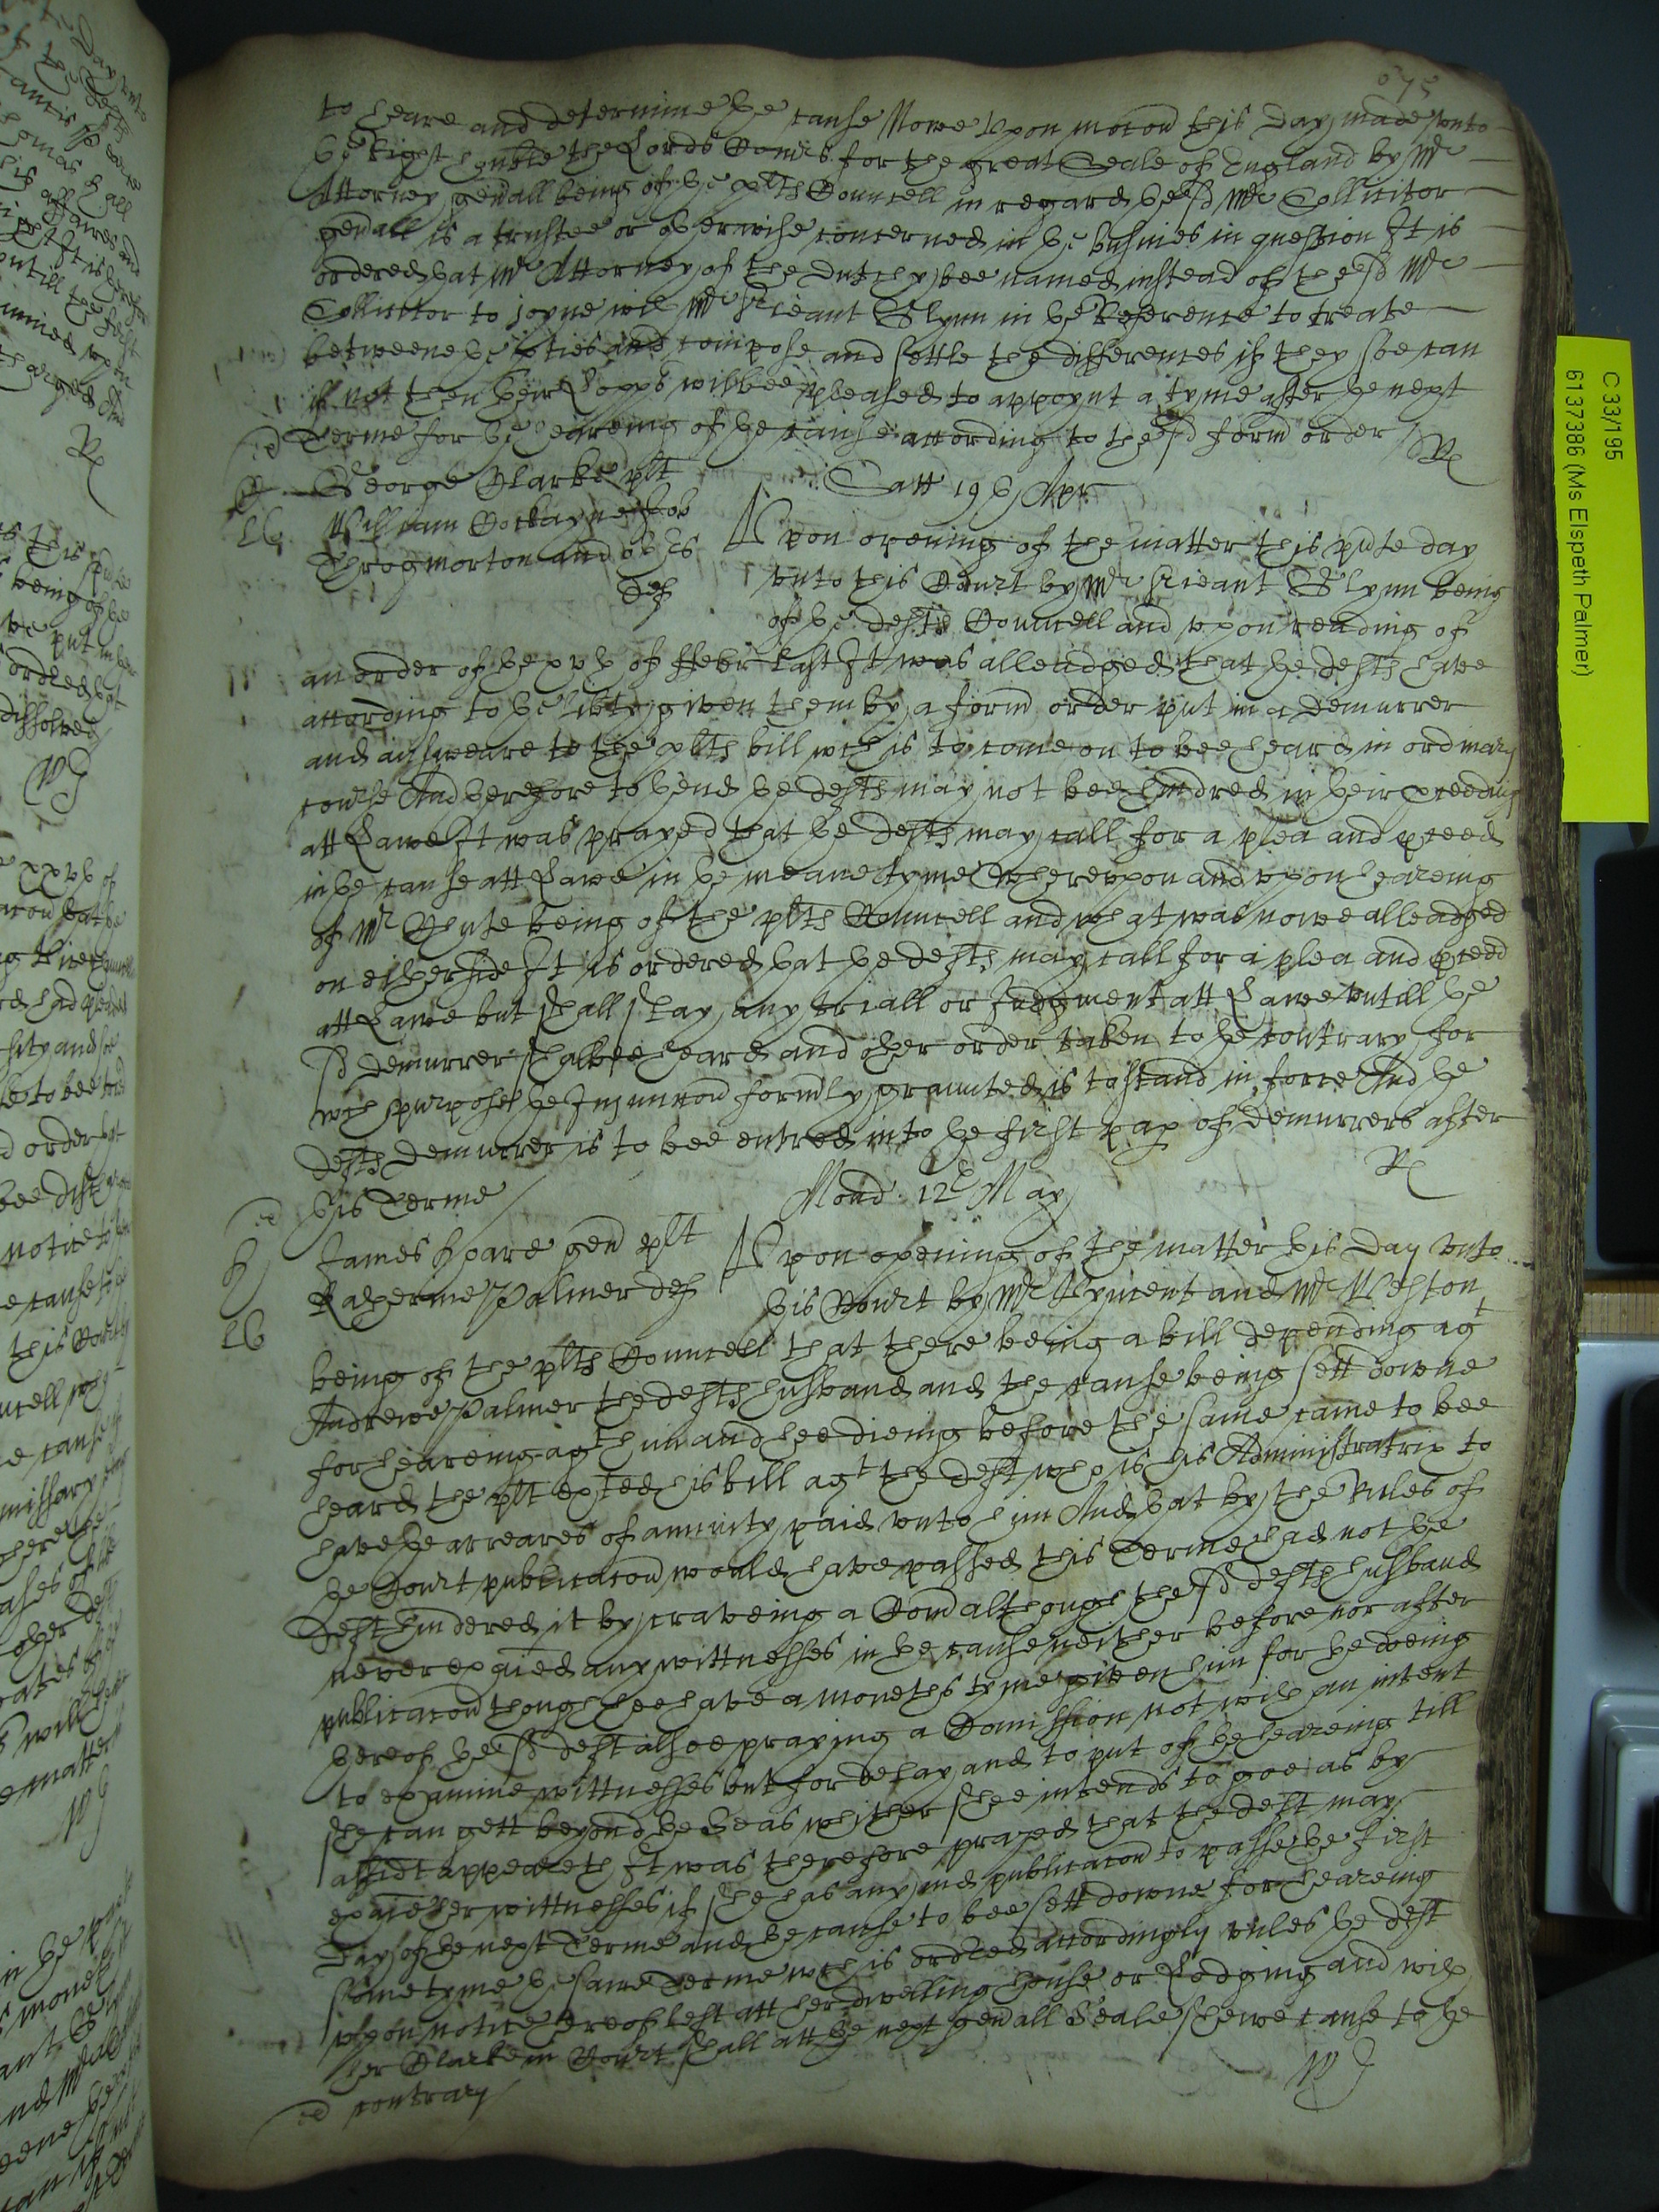 675
to heare and determine the cause Nowe Upon mocon this day made unto
the Right honble the Lords Comrs for the great Seale of England by Mr
Attorney genall being of the plts Councell in regard the sd Mr Sollicitor
genall is a trustee or otherwise concerned in the busines in question It is
ordered that Mr Attorney of the Dutchy bee named instead of the sd Mr
Sollicitor to joyne wth Mr Srieant Glynn in the Reference to treate
betweene the pties and compose and settle the differences if they soe can
if not then their Lopps wilbee pleased to appoynt a tyme after the next
Terme for the heareing of the cause according to the sd form order
Rl
George Clarke plt
Satt 19th Apr
William Cockayne
Throgmorton and othrs
deft
Upon opening of the matter this pnte day
unto this Court by Mr Srieant Glynn being
of the defts Councell and upon reading of
an order of the xvth of ffebr last It was alleadged that the defts have
according to the libty given them by a form order put in a demurrer
and answeare to the plts bill wch is to come on to bee heard in ordinary
course And therefore to thend the defts may not bee hindred in their pceeding
att Lawe It was prayed that the defts may call for a plea and pceed
in the cause att Lawe in the meane tyme Whereupon and upon heareing
of Mr Chute being of the plts Councell and what was nowe alleadged
on either side It is ordered that the defts may call for a plea and pceed
att Lawe but shall stay any triall or Judgment att Lawe untill the
sd demurrer shalbee heard and other order taken to the contrary for
wch purpose the Injunccon formly graunted is to stand in force And the
defts demurrer is to bee entred into the first pap of demurrers after
this Terme
Rl
Mond 12th May
James Hoare gen plt
Katherine Palmer deft
Upon opening of the matter this day unto
this Court by Mr Vyncent and Mr Weston
being of the plts Councell that there being a bill depending agt
Andrewe Palmer the defts husband and the cause being sett downe
for heareing agt him and hee dieing before the same came to bee
heard the plt exhted his bill agt the deft who is his Administratrix to
have the arreares of annuity paid unto him And that by the Rules of
the Court publicacon would have passed this Terme had not the
deft hindered it by craveing a Com although the sd defts husband
never exaied any wittnesses in the cause neither before nor after
publicacon though hee have a moneths tyme given him for the doeing
thereof the sd deft alsoe praying a Comission not with an intent
to examine wittnesses but for delay and to put of the heareing till
she can gett beyond the Seas whither shee intends to goe as by
affidt appeareth It was therefore prayed that the deft may
exaie her wittnesses if she has any and publicacon to passe the first
day of the next Terme and the cause to bee sett downe for heareing
some tyme the same Terme wch is ordred accordingly unles the deft
upon notice hereof left att her dwelling house or Lodging and with
her Clarke in Court shall att the next genall Seale shewe cause to the
contrary
C 33/195
6137386 (Ms Elspeth Palmer)